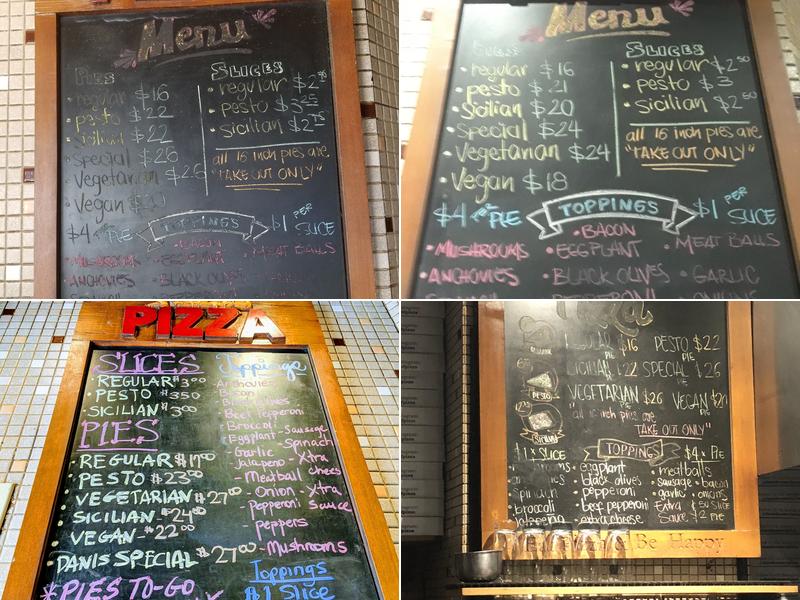 Menu
PIES
• regular $16
• pesto $22
• sicilian $22
• special $26
• Vegetarian $26
• Vegan
SLICES
• regular $2⁷⁵
• pesto $3²⁵
• sicilian $2⁷⁵
all 16 inch pies are
"TAKE OUT ONLY"
$4 PER PIE
TOPPINGS
$1 PER SLICE
• BACON
• MUSHROOMS • EGGPLANT • MEAT BALLS
• ANCHOVIES • BLACK OLIVES • GARLIC
Menu
PIES
• regular $16
• pesto $21
• Sicilian $20
• Special $24
• Vegetarian $24
• Vegan $18
SLICES
• regular $2⁵⁰
• pesto $3
• sicilian $2⁵⁰
all 16 inch pies are
"TAKE OUT ONLY"
$4 PER PIE
TOPPINGS
$1 PER SLICE
• BACON
• MUSHROOMS • EGGPLANT • MEAT BALLS
• ANCHOVIES • BLACK OLIVES • GARLIC
PEPPERONI
PIZZA
SLICES
• REGULAR $3⁰⁰
• PESTO $3⁵⁰
• SICILIAN $3⁰⁰
PIES
• REGULAR $17⁰⁰
• PESTO $23⁰⁰
• VEGETARIAN $27⁰⁰
• SICILIAN $24⁰⁰
• VEGAN $22⁰⁰
• DANIS SPECIAL $27⁰⁰
*PIES TO-GO
Toppings
- Anchovies
- Bacon
- Black Olives
- Beef Pepperoni
- Broccoli
- Eggplant - Sausage
- Garlic - Spinach
- Jalapeno - Xtra
- Meatball cheese
- Onion - Xtra
- Pepperoni Sauce
- peppers
- Mushrooms
Toppings
$1 Slice
Pizza
REGULAR $16 PIE PESTO $22 PIE
SICILIAN $22 SPECIAL $26 PIE
VEGETARIAN $26 VEGAN $20
PESTO
SICILIAN
"all 16 inch pies are
TAKE OUT ONLY"
$1 x SLICE
TOPPINGS
$4 x PIE
• eggplant • meatballs
• black olives • sausage • bacon
spinach • pepperoni • garlic • onions
broccoli • beef pepperoni Extra $.50 Slice
jalapeno • extra cheese Sauce $2 Pie
& Be Happy